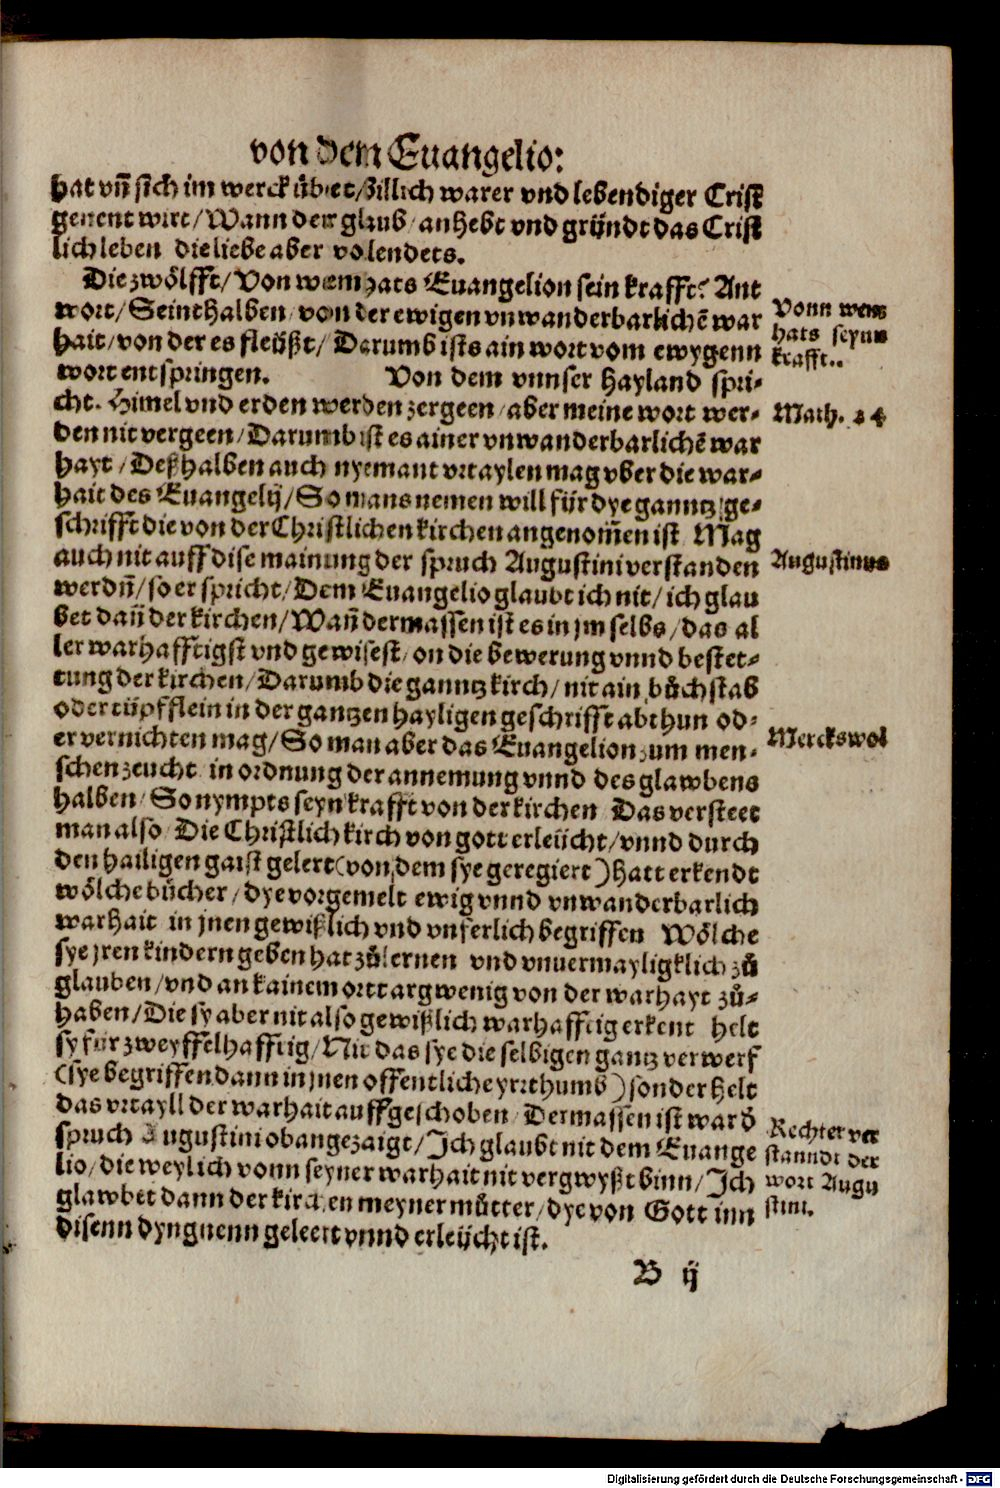 von dem Euangelio:
hat vñ sich im werck übet/ billich warer vnd lebendiger Crist
genent wirt/ Wann der glaub/ anhebt vnd gründt das Crist
lich leben die liebe aber volendets.
Die zwölfft/ Von wem hats Euangelion sein krafft? Ant
wort/ Seinthalben/ von der ewigen vnwanderbarlichē war
hait/ von der es fleüßt/ Darumb ists ain wort vom ewygenn
wort entspringen. Von dem vnnser hayland spri-
cht. Himel vnd erden werden zergeen/ aber meine wort wer-
den nit vergeen/ Darumb ist es ainer vnwanderbarlichē war
hayt/ Deßhalben auch nyemant vrtaylen mag vber die war-
hait des Euangelij/ So mans nemen will für dye ganntz ge-
schrifft die von der Christlichen kirchen angenom̄en ist Mag
auch nit auff dise mainung der spruch Augustini verstanden
werdn̄/ so er spricht/ Dem Euangelio glaubt ich nit/ ich glau
bet dañ der kirchen/ Wañ dermassen ist es in jm selbs/ das al
ler warhafftigst vnd gewisest/ on die bewerung vnnd bestet-
tung der kirchen/ Darumb die ganntz kirch/ nit ain bůchstab
oder tüpfflein in der gantzen hayligen geschrifft abthun od-
er vernichten mag/ So man aber das Euangelion zum men-
schen zeucht in ordnung der annemung vnnd des glawbens
halben/ So nympts seyn krafft von der kirchen Das versteet
man also/ Die Christlich kirch von gott erleücht/ vnnd durch
den hailigen gaist gelert (von dem sye geregiert) hatt erkendt
wölche bücher/ dye vorgemelt ewig vnnd vnwanderbarlich
warhait in jnen gewißlich vnd vnferlich begriffen Wölche
sye jren kindern geben hat zůlernen vnd vnuermayligklich zů
glauben/ vnd an kainem ortt argwenig von der warhayt zů-
haben/ Die sy aber nit also gewißlich warhafftig erkent helt
sy für zweyffelhafftig/ Nit das sye die selbigen gantz verwerf
(sye begriffen dann in jnen offentliche yrrthumb) sonder helt
das vrtayll der warhait auffgeschoben/ Dermassen ist war ð
spruch Augustini obangezaigt/ Ich glaubt nit dem Euange
lio/ die weyl ich vonn seyner warhait nit vergwyßt binn/ Ich
glawbet dann der kirchen meyner můtter/ dye von Gott inn
disenn dyngnenn geleert vnnd erleücht ist.
B ij
Vonn wem
hats seynn
krafft..
Math. 24
Augustinus
Merckswol
Rechter ver
stanndt der
wort Augu
stini.
Digitalisierung gefördert durch die Deutsche Forschungsgemeinschaft - DFG